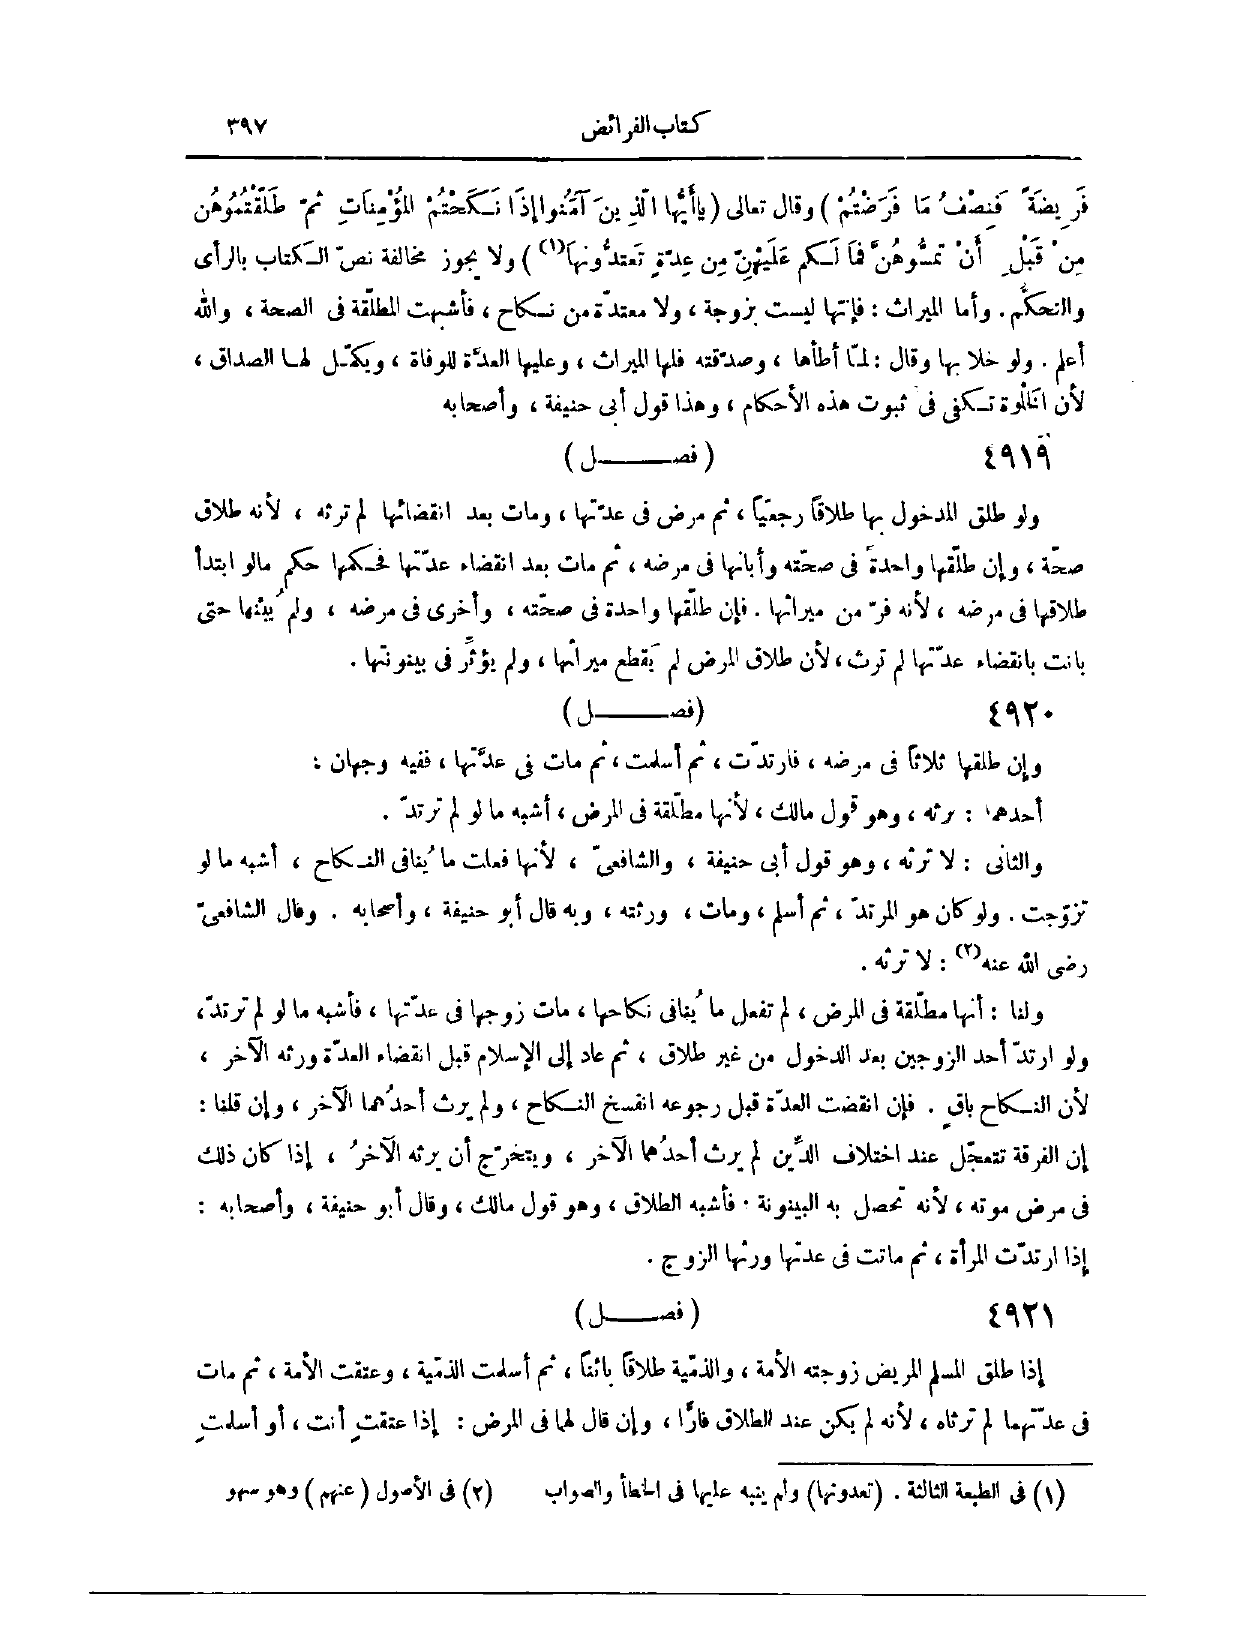 كتاب الفرائض ٣٩٧
فَرِيضَةً فَنِصْفُ مَا فَرَضْتُمْ ) وقال تعالى ( يأَيُّها الَّذِينَ آمَنُوا إِذَا نَكَحْتُمْ المُؤْمِنَاتِ ثُمّ طَلَّقْتُمُوهُن
مِنْ قَبْلِ أَنْ تَمسُّوهُنَّ فَمَا لَكم عَلَيْهِنّ مِن عِدّةٍ تَعتدُّونها(١) ) ولا يجوز مخالفة نصّ الكتاب بالرأى
والتحكُّم . وأما الميراث : فإنّها ليست بزوجة ، ولا معتدّة من نكاح ، فأشبهت المطلّقة فى الصحة ، والله
أعلم . ولو خلا بها وقال : لمّا أطأها ، وصدّقته فلها الميراث ، وعليها العدّة للوفاة ، ويكمّل لها الصداق ،
لأن الخلْوة تكفى فى ثبوت هذه الأحكام ، وهذا قول أبى حنيفة ، وأصحابه
٤٩١٩ ( فصل )
ولو طلق المدخول بها طلاقاً رجعيّاً ، ثم مرض فى عدّتها ، ومات بعد انقضائها لم ترثه ، لأنه طلاق
صحّة ، وإن طلّقها واحدةً فى صحّته وأبانها فى مرضه ، ثم مات بعد انقضاء عدّتها فحكمها حكم مالو ابتدأ
طلاقها فى مرضه ، لأنه فرّ من ميراثها . فإن طلّقها واحدة فى صحّته ، وأخرى فى مرضه ، ولم يُبنها حتى
بانت بانقضاء عدّتها لم ترث ، لأن طلاق المرض لم يَقطع ميراثها ، ولم يؤثِّر فى بينونتها .
٤٩٢٠ (فصل)
وإن طلقها ثلاثاً فى مرضه ، فارتدّت ، ثم أسلمت ، ثم مات فى عدّتها ، ففيه وجهان :
أحدهما : ترثه ، وهو قول مالك ، لأنها مطلّقة فى المرض ، أشبه ما لو لم ترتدّ .
والثانى : لا ترثه ، وهو قول أبى حنيفة ، والشافعىّ ، لأنها فعلت ما يُنافى النكاح ، أشبه ما لو
تزوّجت . ولو كان هو المرتدّ ، ثم أسلم ، ومات ، ورثته ، وبه قال أبو حنيفة ، وأصحابه . وقال الشافعىّ
رضى الله عنه(٢) : لا ترثه .
ولنا : أنها مطلّقة فى المرض ، لم تفعل ما يُنافى نكاحها ، مات زوجها فى عدّتها ، فأشبه ما لو لم ترتدّ ،
ولو ارتدّ أحد الزوجين بعد الدخول من غير طلاق ، ثم عاد إلى الإسلام قبل انقضاء العدّة ورثه الآخر ،
لأن النكاح باقٍ . فإن انقضت العدّة قبل رجوعه انفسخ النكاح ، ولم يرث أحدُهما الآخر ، وإن قلنا :
إن الفرقة تتعجّل عند اختلاف الدِّين لم يرث أحدُهما الآخر ، ويتخرّج أن يرثه الآخرُ ، إذا كان ذلك
فى مرض موته ، لأنه تحصل به البينونة . فأشبه الطلاق ، وهو قول مالك ، وقال أبو حنيفة ، وأصحابه :
إذا ارتدّت المرأة ، ثم ماتت فى عدتها ورثها الزوج .
٤٩٢١ ( فصل )
إذا طلق المسلم المريض زوجته الأمة ، والذمّية طلاقاً بائناً ، ثم أسلمت الذمّية ، وعتقت الأمة ، ثم مات
فى عدّتهما لم ترثاه ، لأنه لم يكن عند الطلاق فارًّا ، وإن قال لهما فى المرض : إذا عتقتِ أنت ، أو أسلمتِ
(١) فى الطبعة الثالثة . (تعدونها) ولم ينبه عليها فى الخطأ والصواب (٢) فى الأصول ( عنهم ) وهو سهو